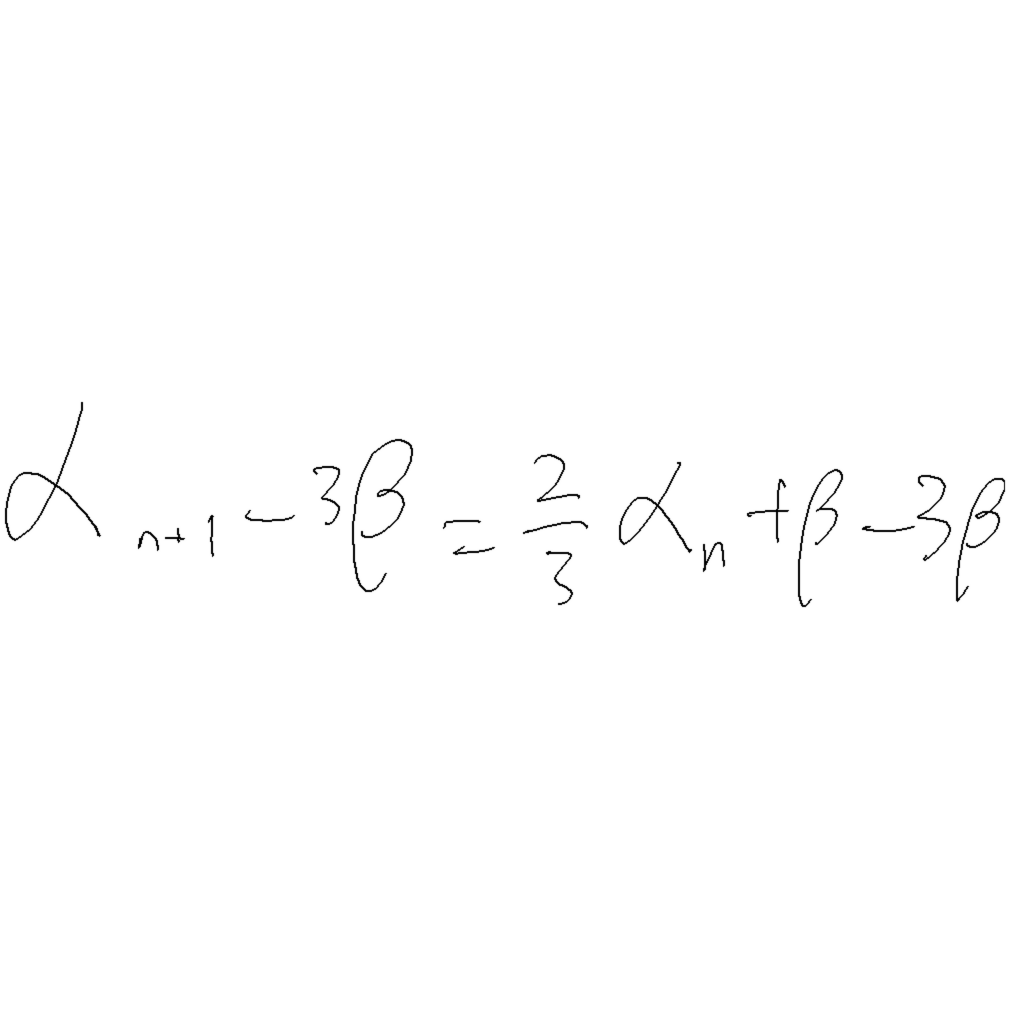 \alpha_{n+1} - 3\beta = \frac{2}{3} \alpha_n + \beta - 3\beta